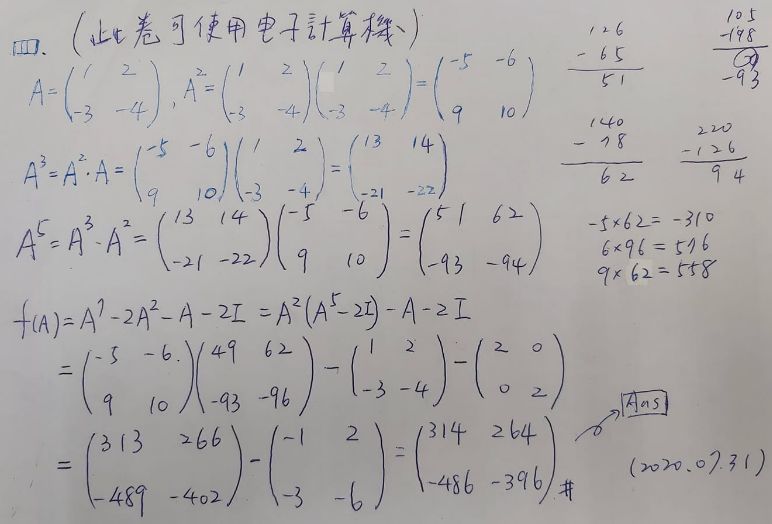 四. (此卷可使用电子計算機)
A=(1 2 -3 -4), A²=(1 2 -3 -4)(1 2 -3 -4)=(-5 -6 9 10)
A³=A²·A=(-5 -6 9 10)(1 2 -3 -4)=(13 14 -21 -22)
A⁵=A³·A²=(13 14 -21 -22)(-5 -6 9 10)=(51 62 -93 -94)
f(A)=A⁷-2A²-A-2I=A²(A⁵-2I)-A-2I
=(-5 -6 9 10)(49 62 -93 -96)-(1 2 -3 -4)-(2 0 0 2)
=(313 266 -489 -402)-(-1 2 -3 -6)=(314 264 -486 -396)#
Ans
(2020.07.31)
126
-65
51
105
-198
-93
140
-78
62
220
-126
94
-5×62=-310
6×96=576
9×62=558